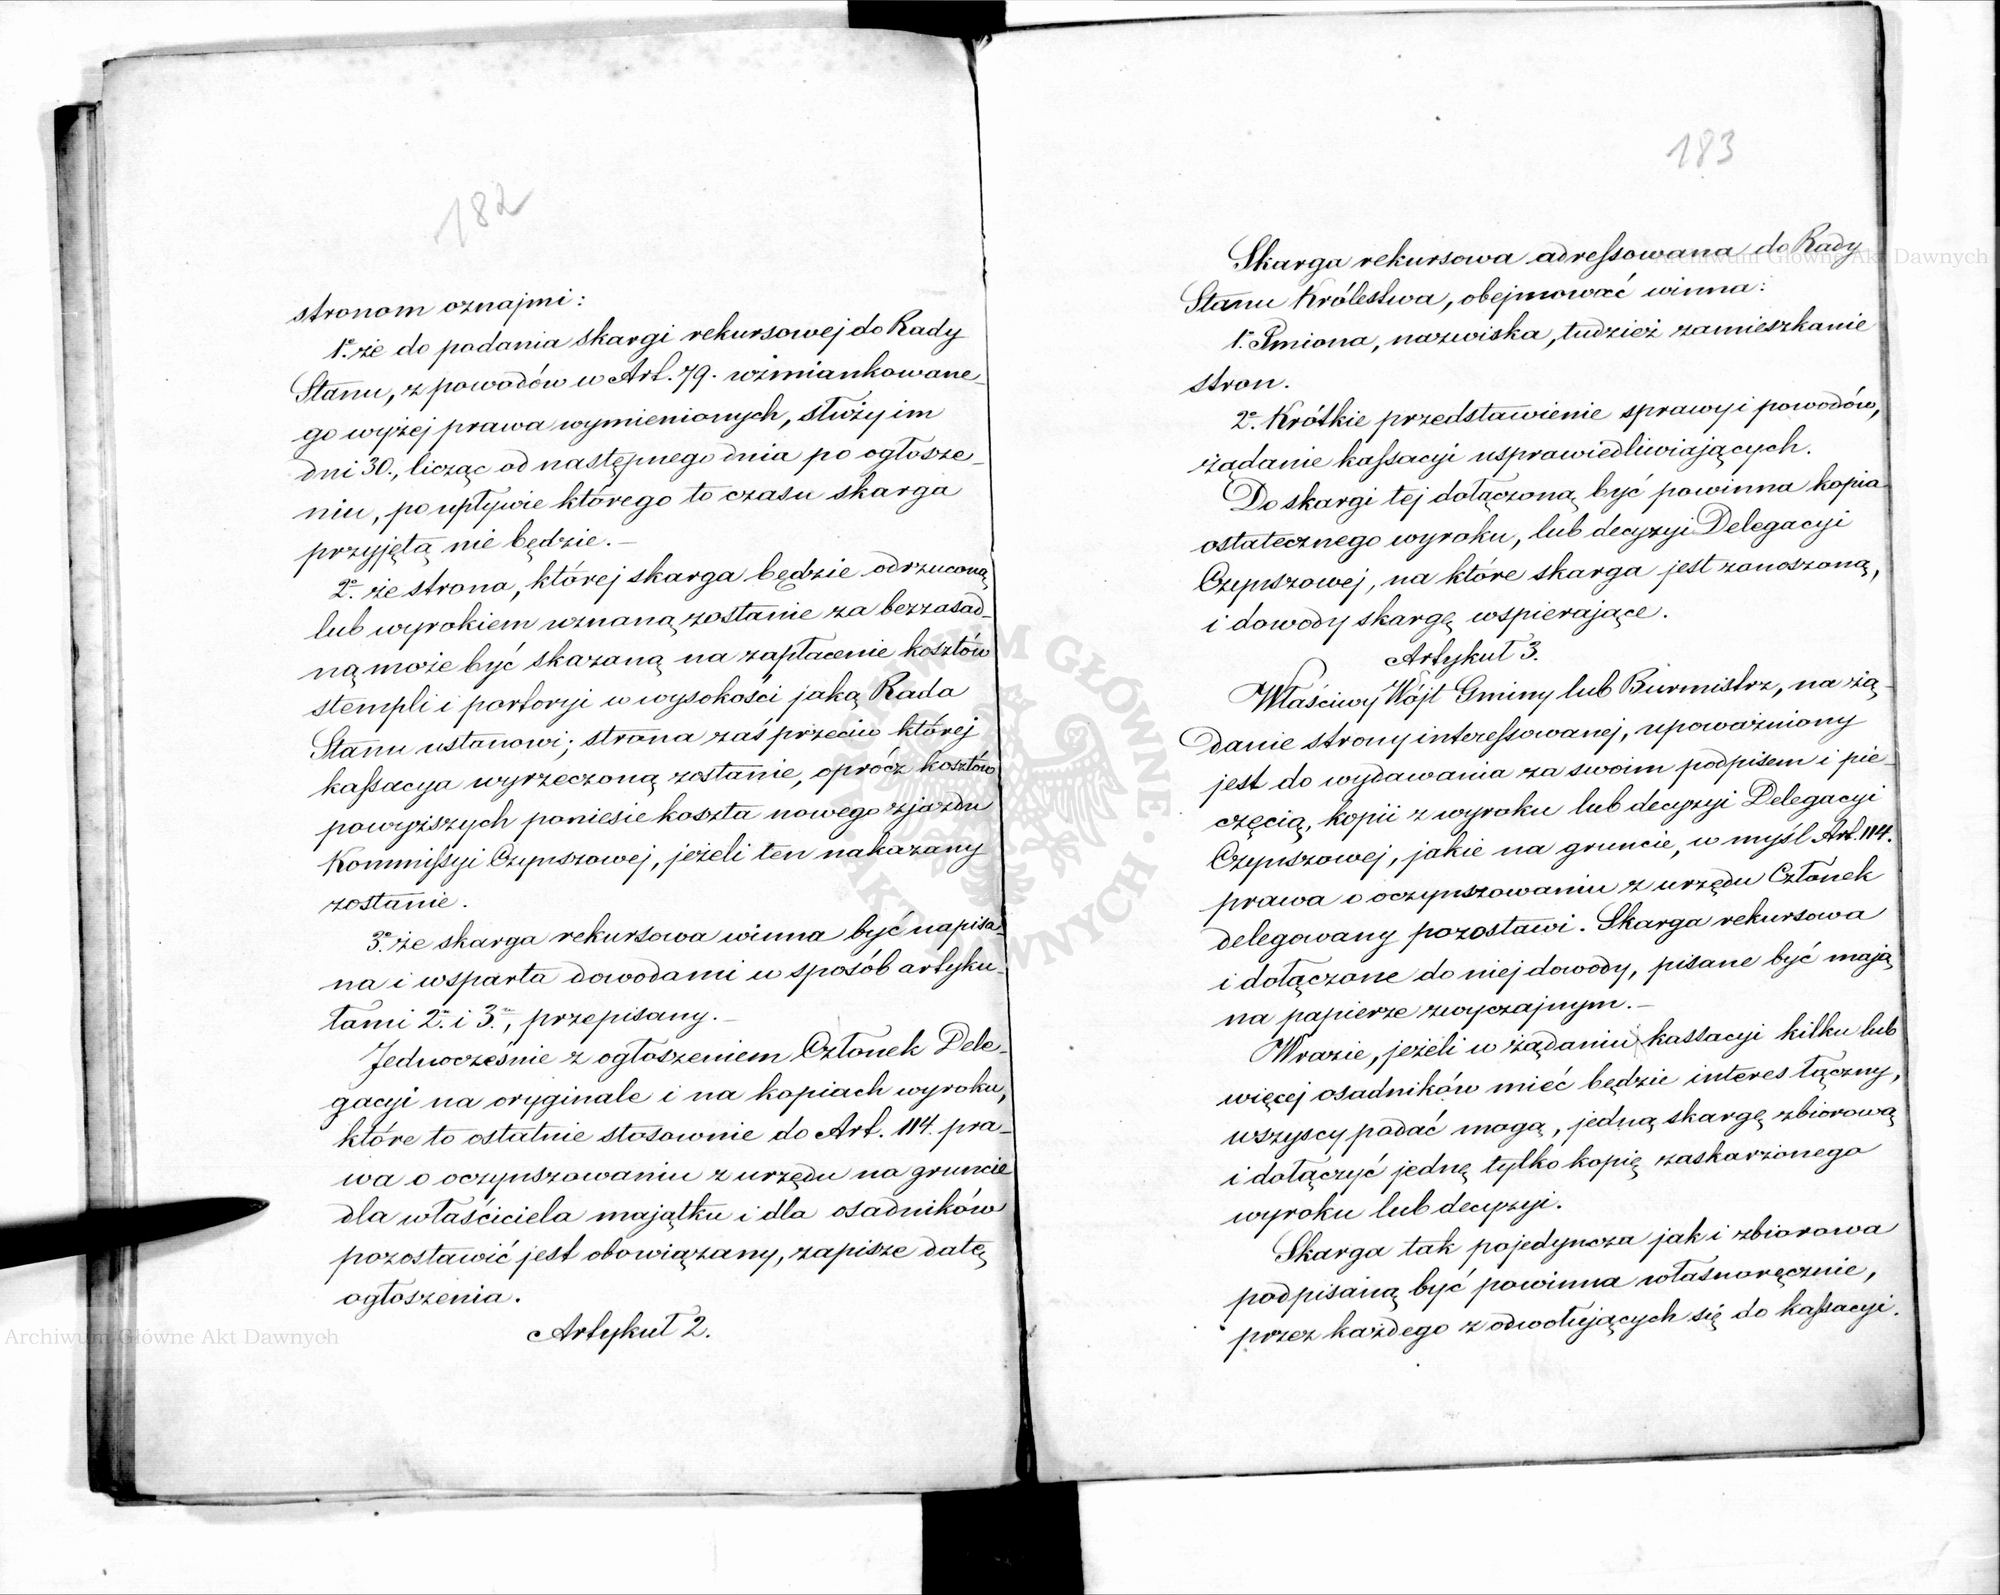 182
stronom oznajmi:
1º że do podania skargi rekursowej do Rady
Stanu, z powodów w Art. 79. wzmiankowane-
go wyżej prawa wymienionych, służy im
dni 30., licząc od następnego dnia po ogłosze-
niu, po upływie którego to czasu skarga
przyjętą nie będzie.—
2º że strona, której skarga będzie odrzuconą
lub wyrokiem uznaną zostanie za bezzasad-
ną może być skazaną na zapłacenie kosztów
stempli i portoryi w wysokości jaką Rada
Stanu ustanowi; strona zaś przeciw której
kassacya wyrzeczoną zostanie, oprócz kosztów
powyższych poniesie koszta nowego zjazdu
Kommissyi Czynszowej, jeżeli ten nakazany
zostanie.
3º że skarga rekursowa winna być napisa-
na i wsparta dowodami w sposób artyku-
łami 2m i 3m, przepisany.—
Jednocześnie z ogłoszeniem Członek Dele-
gacyi na oryginale i na kopiach wyroku,
które to ostatnie stosownie do Art. 114. pra-
wa o oczynszowaniu z urzędu na gruncie
dla właściciela majątku i dla osadników
pozostawić jest obowiązany, zapisze datę
ogłoszenia.
Artykuł 2.
183
Skarga rekursowa adressowana do Rady
Stanu Królestwa, obejmować winna:
1º Imiona, nazwiska, tudzież zamieszkanie
stron.
2º Krótkie przedstawienie sprawy i powodów,
żądanie kassacyi usprawiedliwiających.
Do skargi tej dołączoną być powinna kopia
ostatecznego wyroku, lub decyzyi Delegacyi
Czynszowej, na które skarga jest zanoszoną,
i dowody skargę wspierające.
Artykuł 3.
Właściwy Wójt Gminy lub Burmistrz, na żą-
danie strony interessowanej, upoważniony
jest do wydawania za swoim podpisem i pie-
częcią, kopii z wyroku lub decyzyi Delegacyi
Czynszowej, jakie na gruncie, w myśl Art. 114.
prawa o oczynszowaniu z urzędu Członek
delegowany pozostawi. Skarga rekursowa
i dołączone do niej dowody, pisane być mają
na papierze zwyczajnym.—
W razie, jeżeli w żądaniu kassacyi kilku lub
więcej osadników mieć będzie interes łączny,
wszyscy podać mogą, jedną skargę zbiorową
i dołączyć jednę tylko kopię zaskarżonego
wyroku lub decyzyi.
Skarga tak pojedyncza jak i zbiorowa
podpisaną być powinna własnoręcznie,
przez każdego z odwołujących się do kassacyi.
Archiwum Główne Akt Dawnych
Archiwum Główne Akt Dawnych